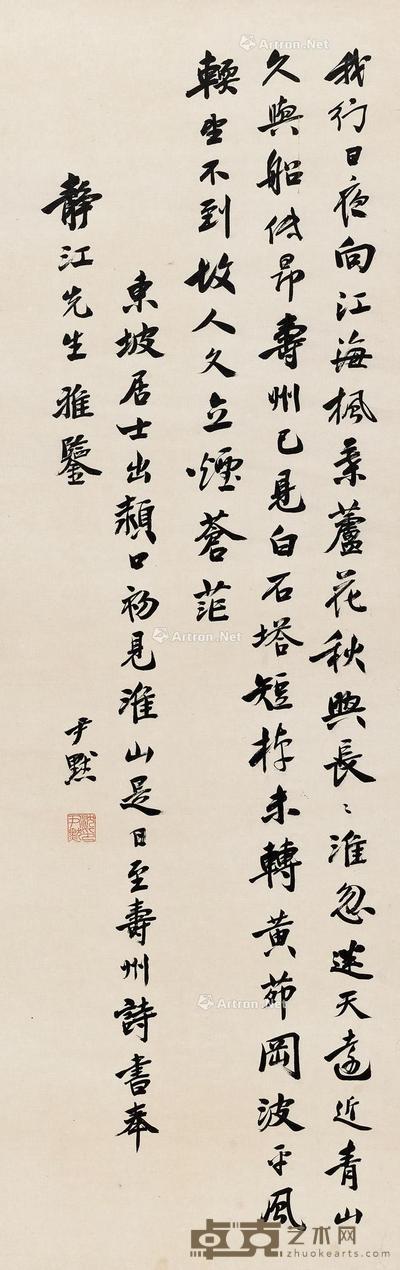 我行日夜向江海楓葉蘆花秋興長〻淮忽迷天遠近青山
久與船低昂壽州已見白石塔短棹未轉黃茆岡波平風
輭望不到故人久立煙蒼茫
東坡居士出潁口初見淮山是日至壽州詩書奉
靜江先生雅鑒
尹默
Artron.Net
Artron.Net
Artron.Net
卓克艺术网
zhuokearts.com